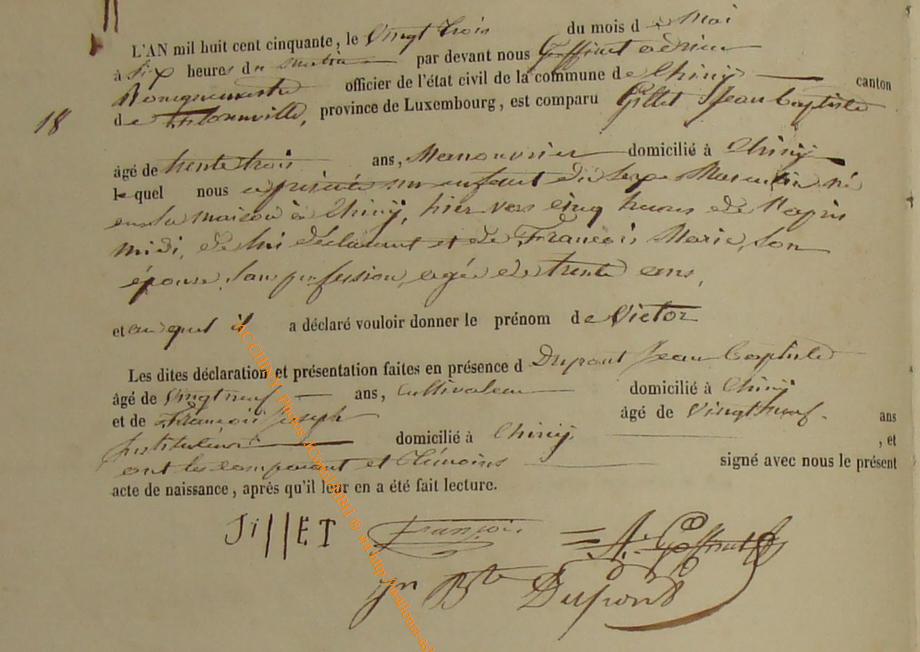 L'AN mil huit cent cinquante, le Vingt trois du mois de Mai
à Six heures du matin par devant nous Goffinet adrien
Bourguemestre officier de l'état civil de la commune de Chiny canton
18
de Florenville, province de Luxembourg, est comparu Gillet Jean Baptiste
âgé de trente trois ans, Manouvrier domicilié à Chiny
lequel nous a présenté un enfant du sexe Masculin né
en sa maison à Chiny, hier vers cinq heures de l'après
midi, de lui déclarant et de François Marie, son
épouse, sans profession, agée de trente ans,
et auquel il a déclaré vouloir donner le prénom de Victor
Les dites déclaration et présentation faites en présence d Dupont Jean Baptiste
âgé de Vingt neuf ans, Cultivateur domicilié à Chiny
et de François Joseph âgé de Vingt neuf ans
Instituteur domicilié à Chiny , et
ont les comparant et témoins signé avec nous le présent
acte de naissance, après qu'il leur en a été fait lecture.
JillET François A. Goffinet
Jn Bte Dupont